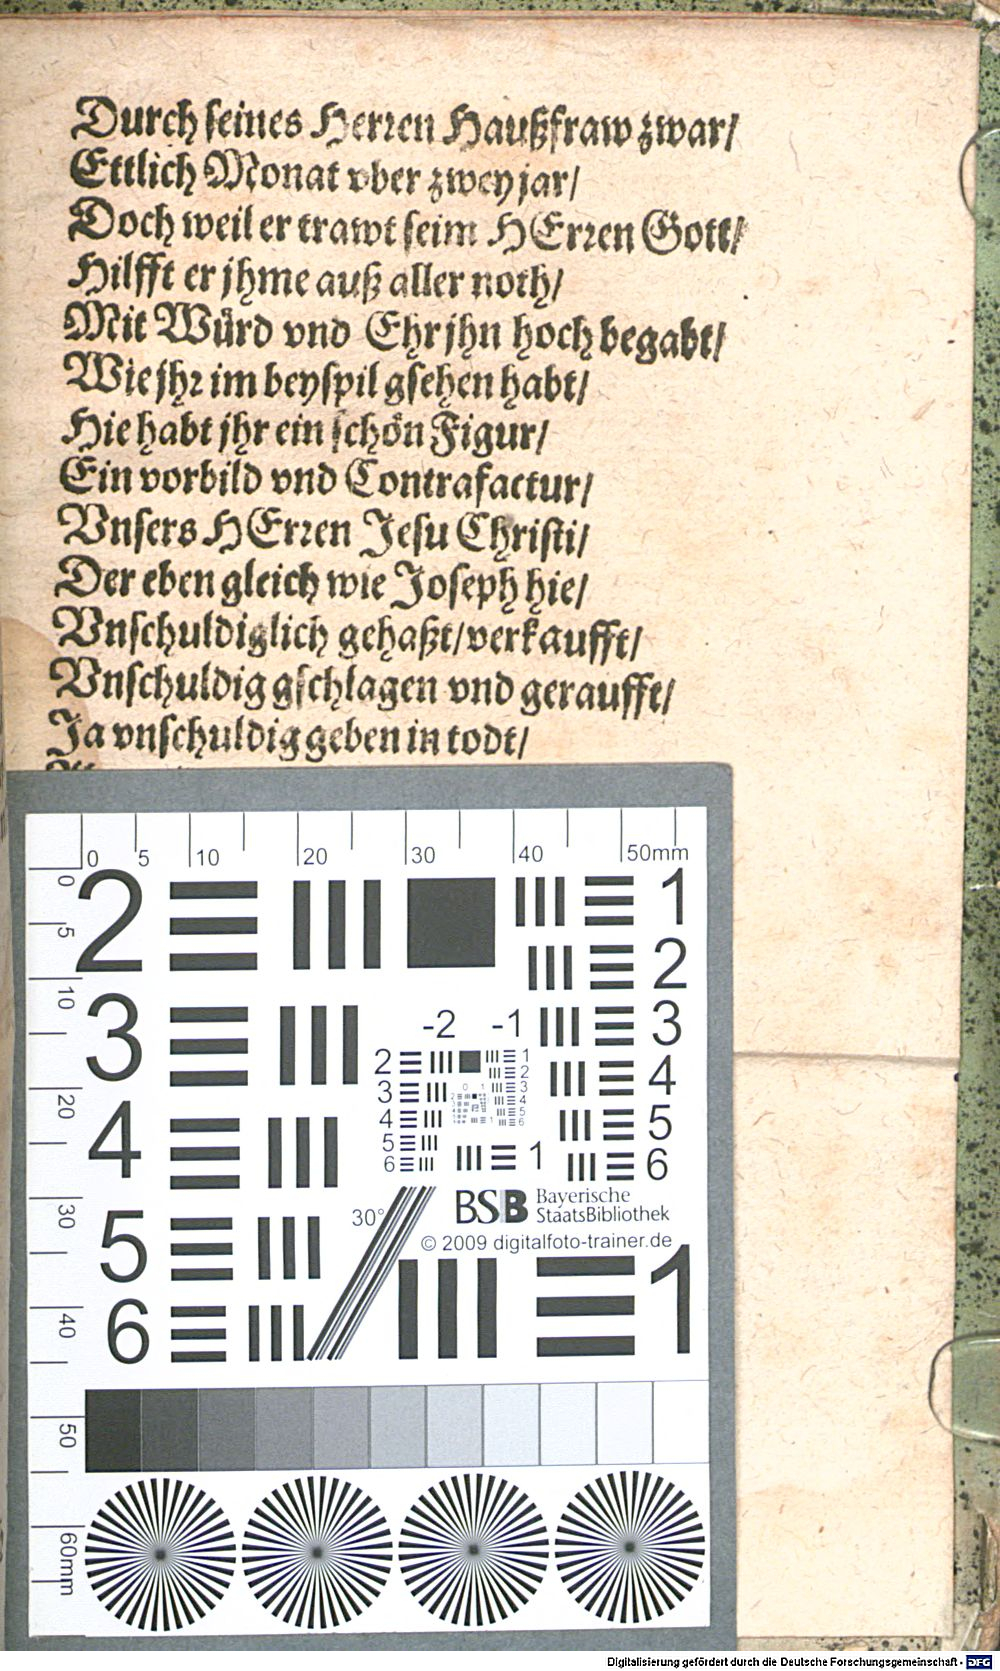 Durch seines Herren Haußfraw zwar/
Ettlich Monat vber zwey jar/
Doch weil er trawt seim HErren Gott/
Hilfft er jhme auß aller noth/
Mit Würd vnd Ehr jhn hoch begabt/
Wie jhr im beyspil gsehen habt/
Hie habt jhr ein schön Figur/
Ein vorbild vnd Contrafactur/
Vnsers HErren Jesu Christi/
Der eben gleich wie Joseph hie/
Vnschuldiglich gehaßt/verkaufft/
Vnschuldig gschlagen vnd geraufft/
Ja vnschuldig geben in todt/
0 5 10 20 30 40 50mm
0 5 10 20 30 40 50 60mm
2 1
2
3 3
-2 -1
2 1
2
3 3
4 4
5 5
6 6
1
4 4
5
6
30°
BSB Bayerische
StaatsBibliothek
© 2009 digitalfoto-trainer.de
5 1
6
Digitalisierung gefördert durch die Deutsche Forschungsgemeinschaft - DFG